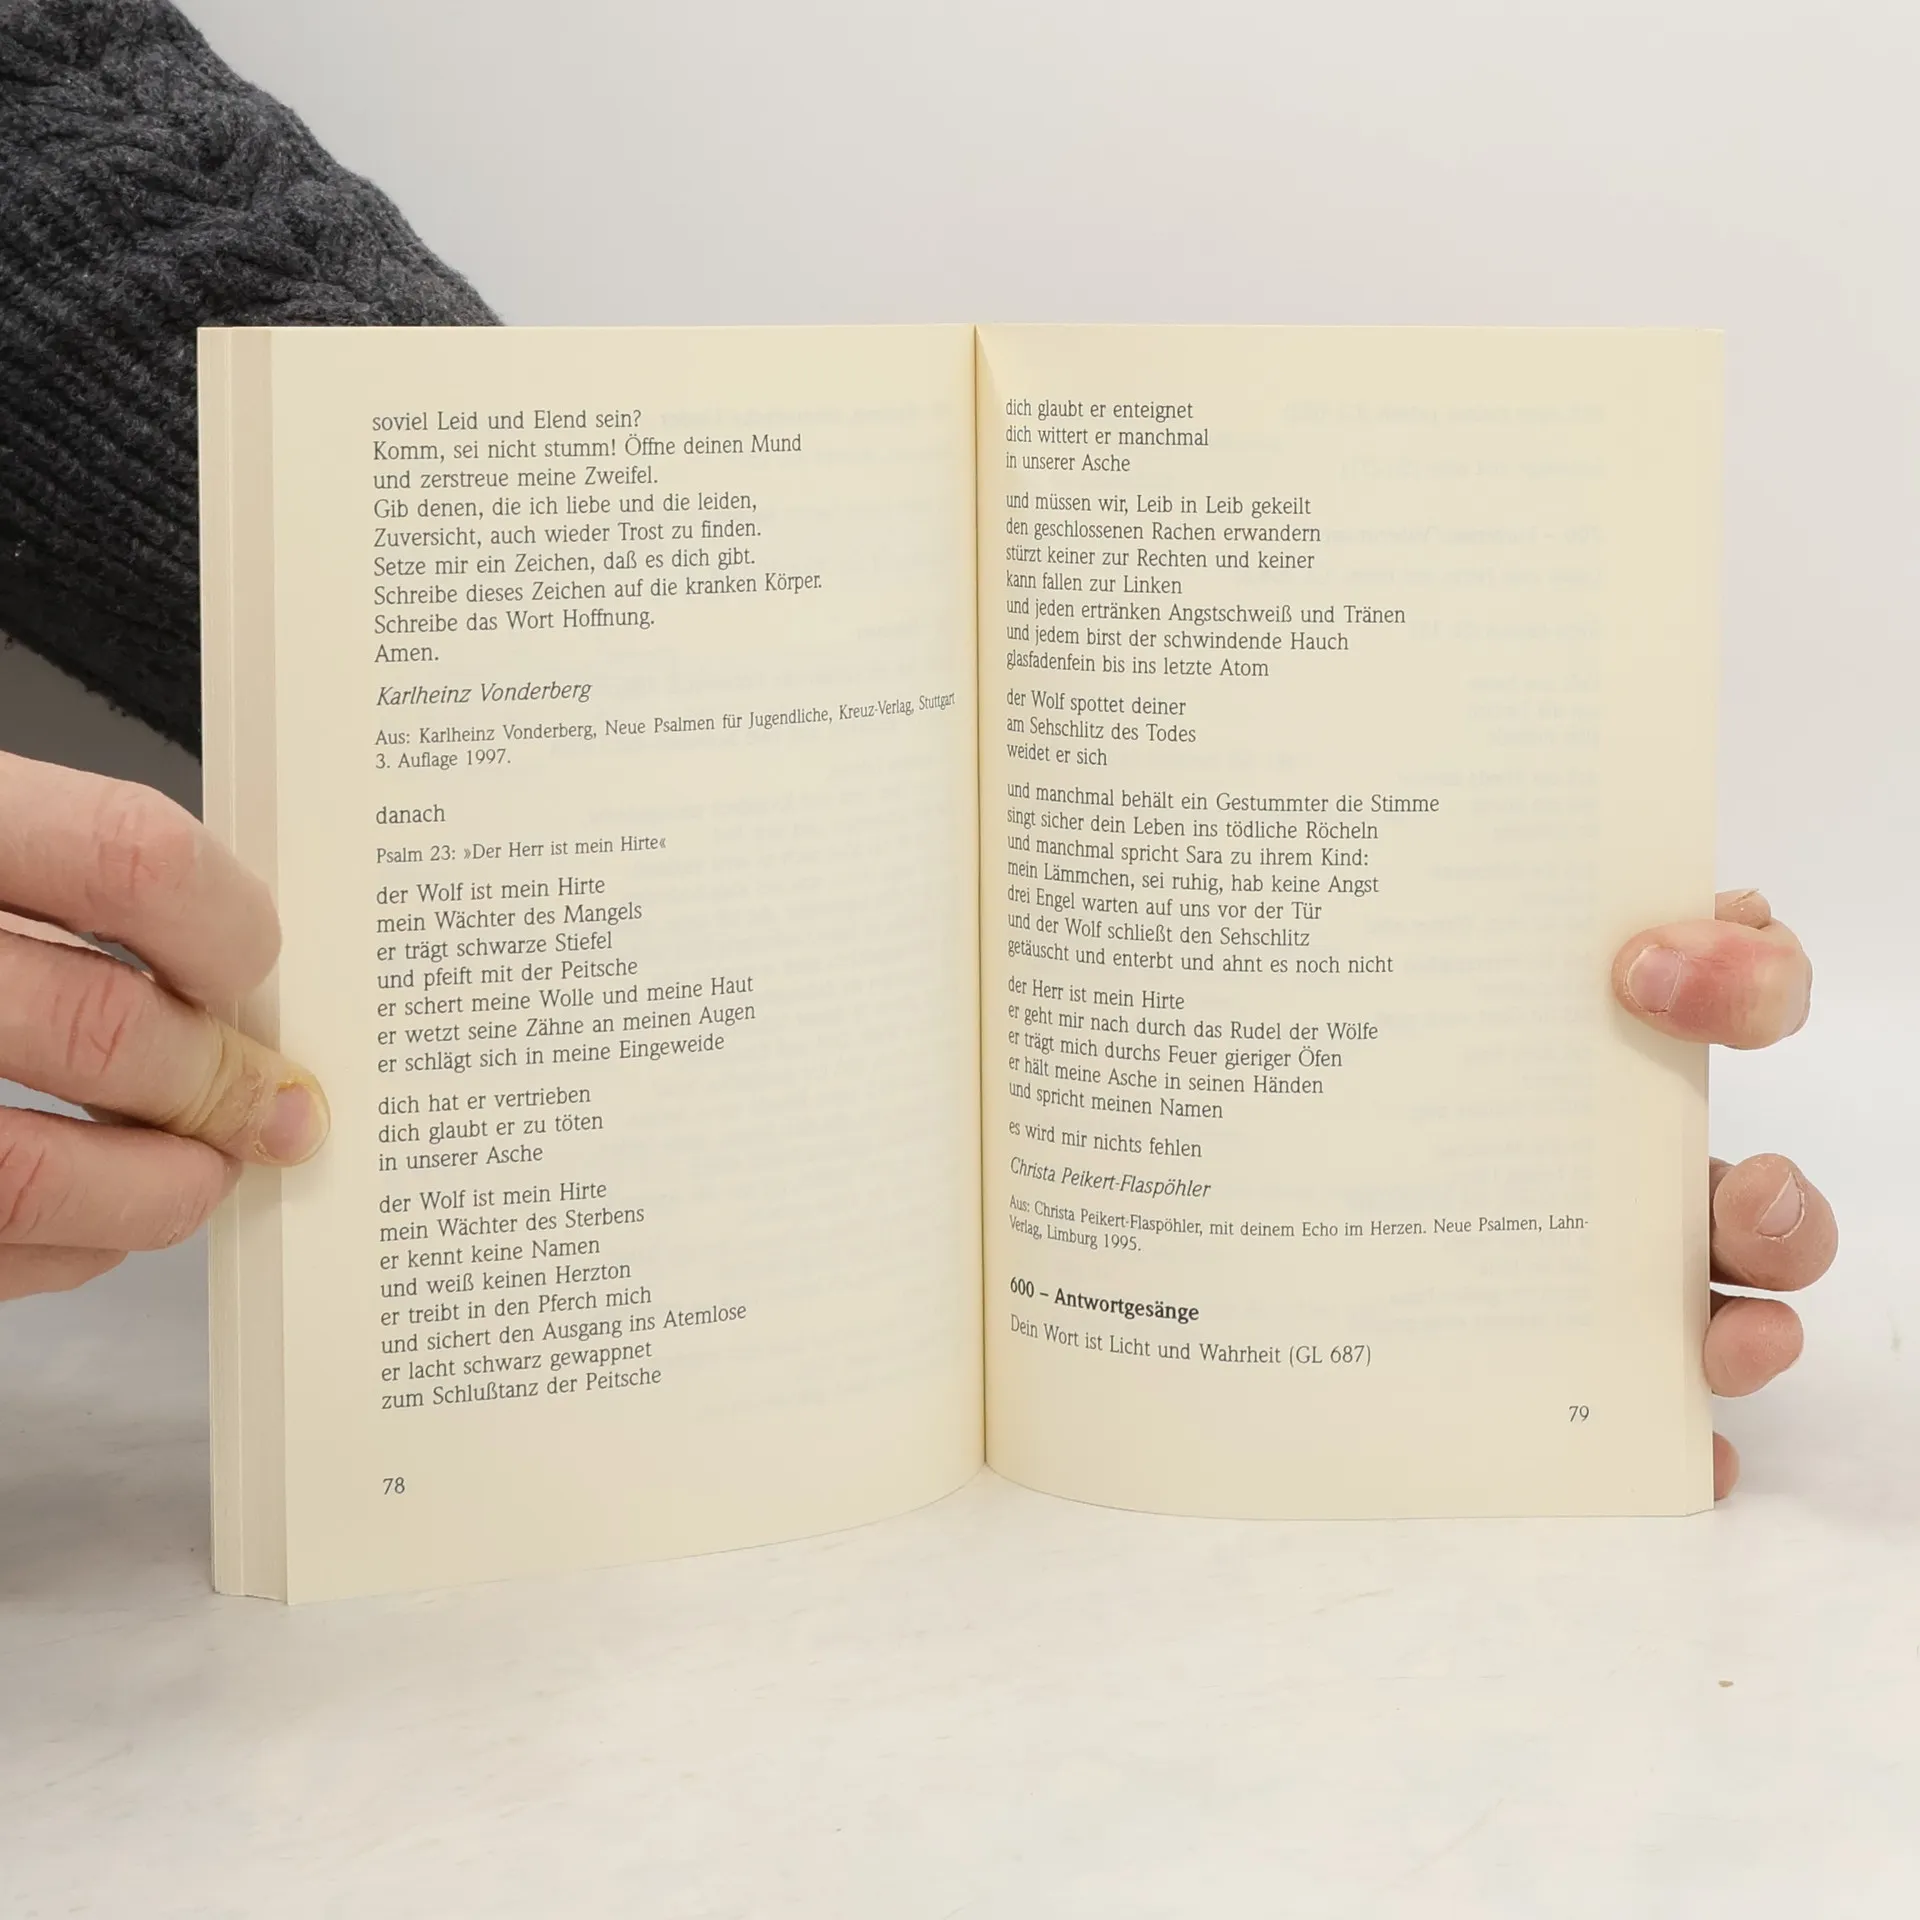 soviel Leid und Elend sein?
Komm, sei nicht stumm! Öffne deinen Mund
und zerstreue meine Zweifel.
Gib denen, die ich liebe und die leiden,
Zuversicht, auch wieder Trost zu finden.
Setze mir ein Zeichen, daß es dich gibt.
Schreibe dieses Zeichen auf die kranken Körper.
Schreibe das Wort Hoffnung.
Amen.
Karlheinz Vonderberg
Aus: Karlheinz Vonderberg, Neue Psalmen für Jugendliche, Kreuz-Verlag, Stuttgart
3. Auflage 1997.
danach
Psalm 23: »Der Herr ist mein Hirte«
der Wolf ist mein Hirte
mein Wächter des Mangels
er trägt schwarze Stiefel
und pfeift mit der Peitsche
er schert meine Wolle und meine Haut
er wetzt seine Zähne an meinen Augen
er schlägt sich in meine Eingeweide
dich hat er vertrieben
dich glaubt er zu töten
in unserer Asche
der Wolf ist mein Hirte
mein Wächter des Sterbens
er kennt keine Namen
und weiß keinen Herzton
er treibt in den Pferch mich
und sichert den Ausgang ins Atemlose
er lacht schwarz gewappnet
zum Schlußtanz der Peitsche
78
dich glaubt er enteignet
dich wittert er manchmal
in unserer Asche
und müssen wir, Leib in Leib gekeilt
den geschlossenen Rachen erwandern
stürzt keiner zur Rechten und keiner
kann fallen zur Linken
und jeden ertränken Angstschweiß und Tränen
und jedem birst der schwindende Hauch
glasfadenfein bis ins letzte Atom
der Wolf spottet deiner
am Sehschlitz des Todes
weidet er sich
und manchmal behält ein Gestummter die Stimme
singt sicher dein Leben ins tödliche Röcheln
und manchmal spricht Sara zu ihrem Kind:
mein Lämmchen, sei ruhig, hab keine Angst
drei Engel warten auf uns vor der Tür
und der Wolf schließt den Sehschlitz
getäuscht und enterbt und ahnt es noch nicht
der Herr ist mein Hirte
er geht mir nach durch das Rudel der Wölfe
er trägt mich durchs Feuer gieriger Öfen
er hält meine Asche in seinen Händen
und spricht meinen Namen
es wird mir nichts fehlen
Christa Peikert-Flaspöhler
Aus: Christa Peikert-Flaspöhler, mit deinem Echo im Herzen. Neue Psalmen, Lahn-
Verlag, Limburg 1995.
600 – Antwortgesänge
Dein Wort ist Licht und Wahrheit (GL 687)
79